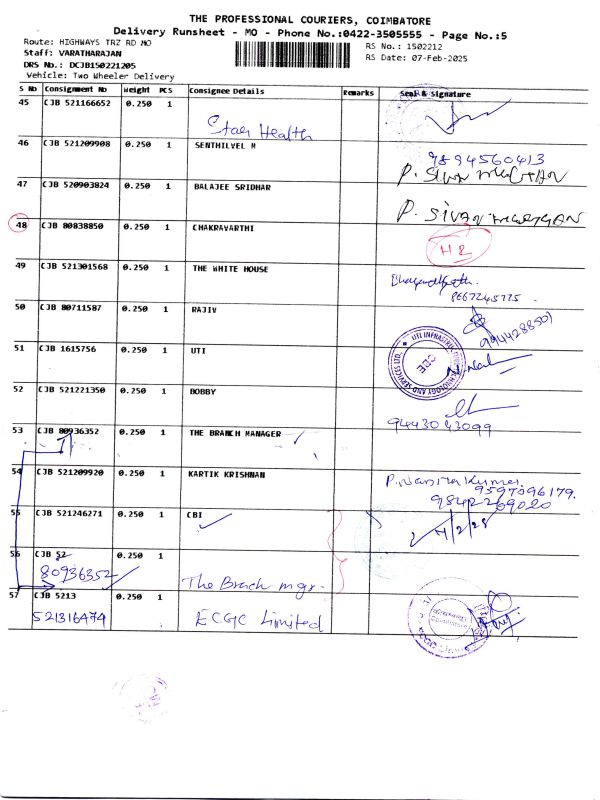 THE PROFESSIONAL COURIERS, COIMBATORE
Delivery Runsheet - MO - Phone No.:0422-3505555 - Page No.:5
Route: HIGHWAYS TRZ RD MO
RS No.: 1502212
Staff: VARATHARAJAN
RS Date: 07-Feb-2025
DRS No.: DCJB150221205
Vehicle: Two Wheeler Delivery
S No Consignment No Weight PCS Consignee Details Remarks Seal & Signature
45 CJB 521166652 0.250 1 Star Health
46 CJB 521209908 0.250 1 SENTHILVEL M 9894560413
47 CJB 520903824 0.250 1 BALAJEE SRIDHAR
48 CJB 80838850 0.250 1 CHAKRAVARTHI
49 CJB 521301568 0.250 1 THE WHITE HOUSE
50 CJB 80711587 0.250 1 RAJIV 9944288501
51 CJB 1615756 0.250 1 UTI
52 CJB 521221350 0.250 1 BOBBY 9443043099
53 CJB 80936352 0.250 1 THE BRANCH MANAGER
54 CJB 521209920 0.250 1 KARTIK KRISHNAN 9597096179.
55 CJB 521246271 0.250 1 CBI
56 CJB 52 0.250 1
80936352 The Branch mgr.
57 CJB 5213 0.250 1
521316474 ECGC Limited